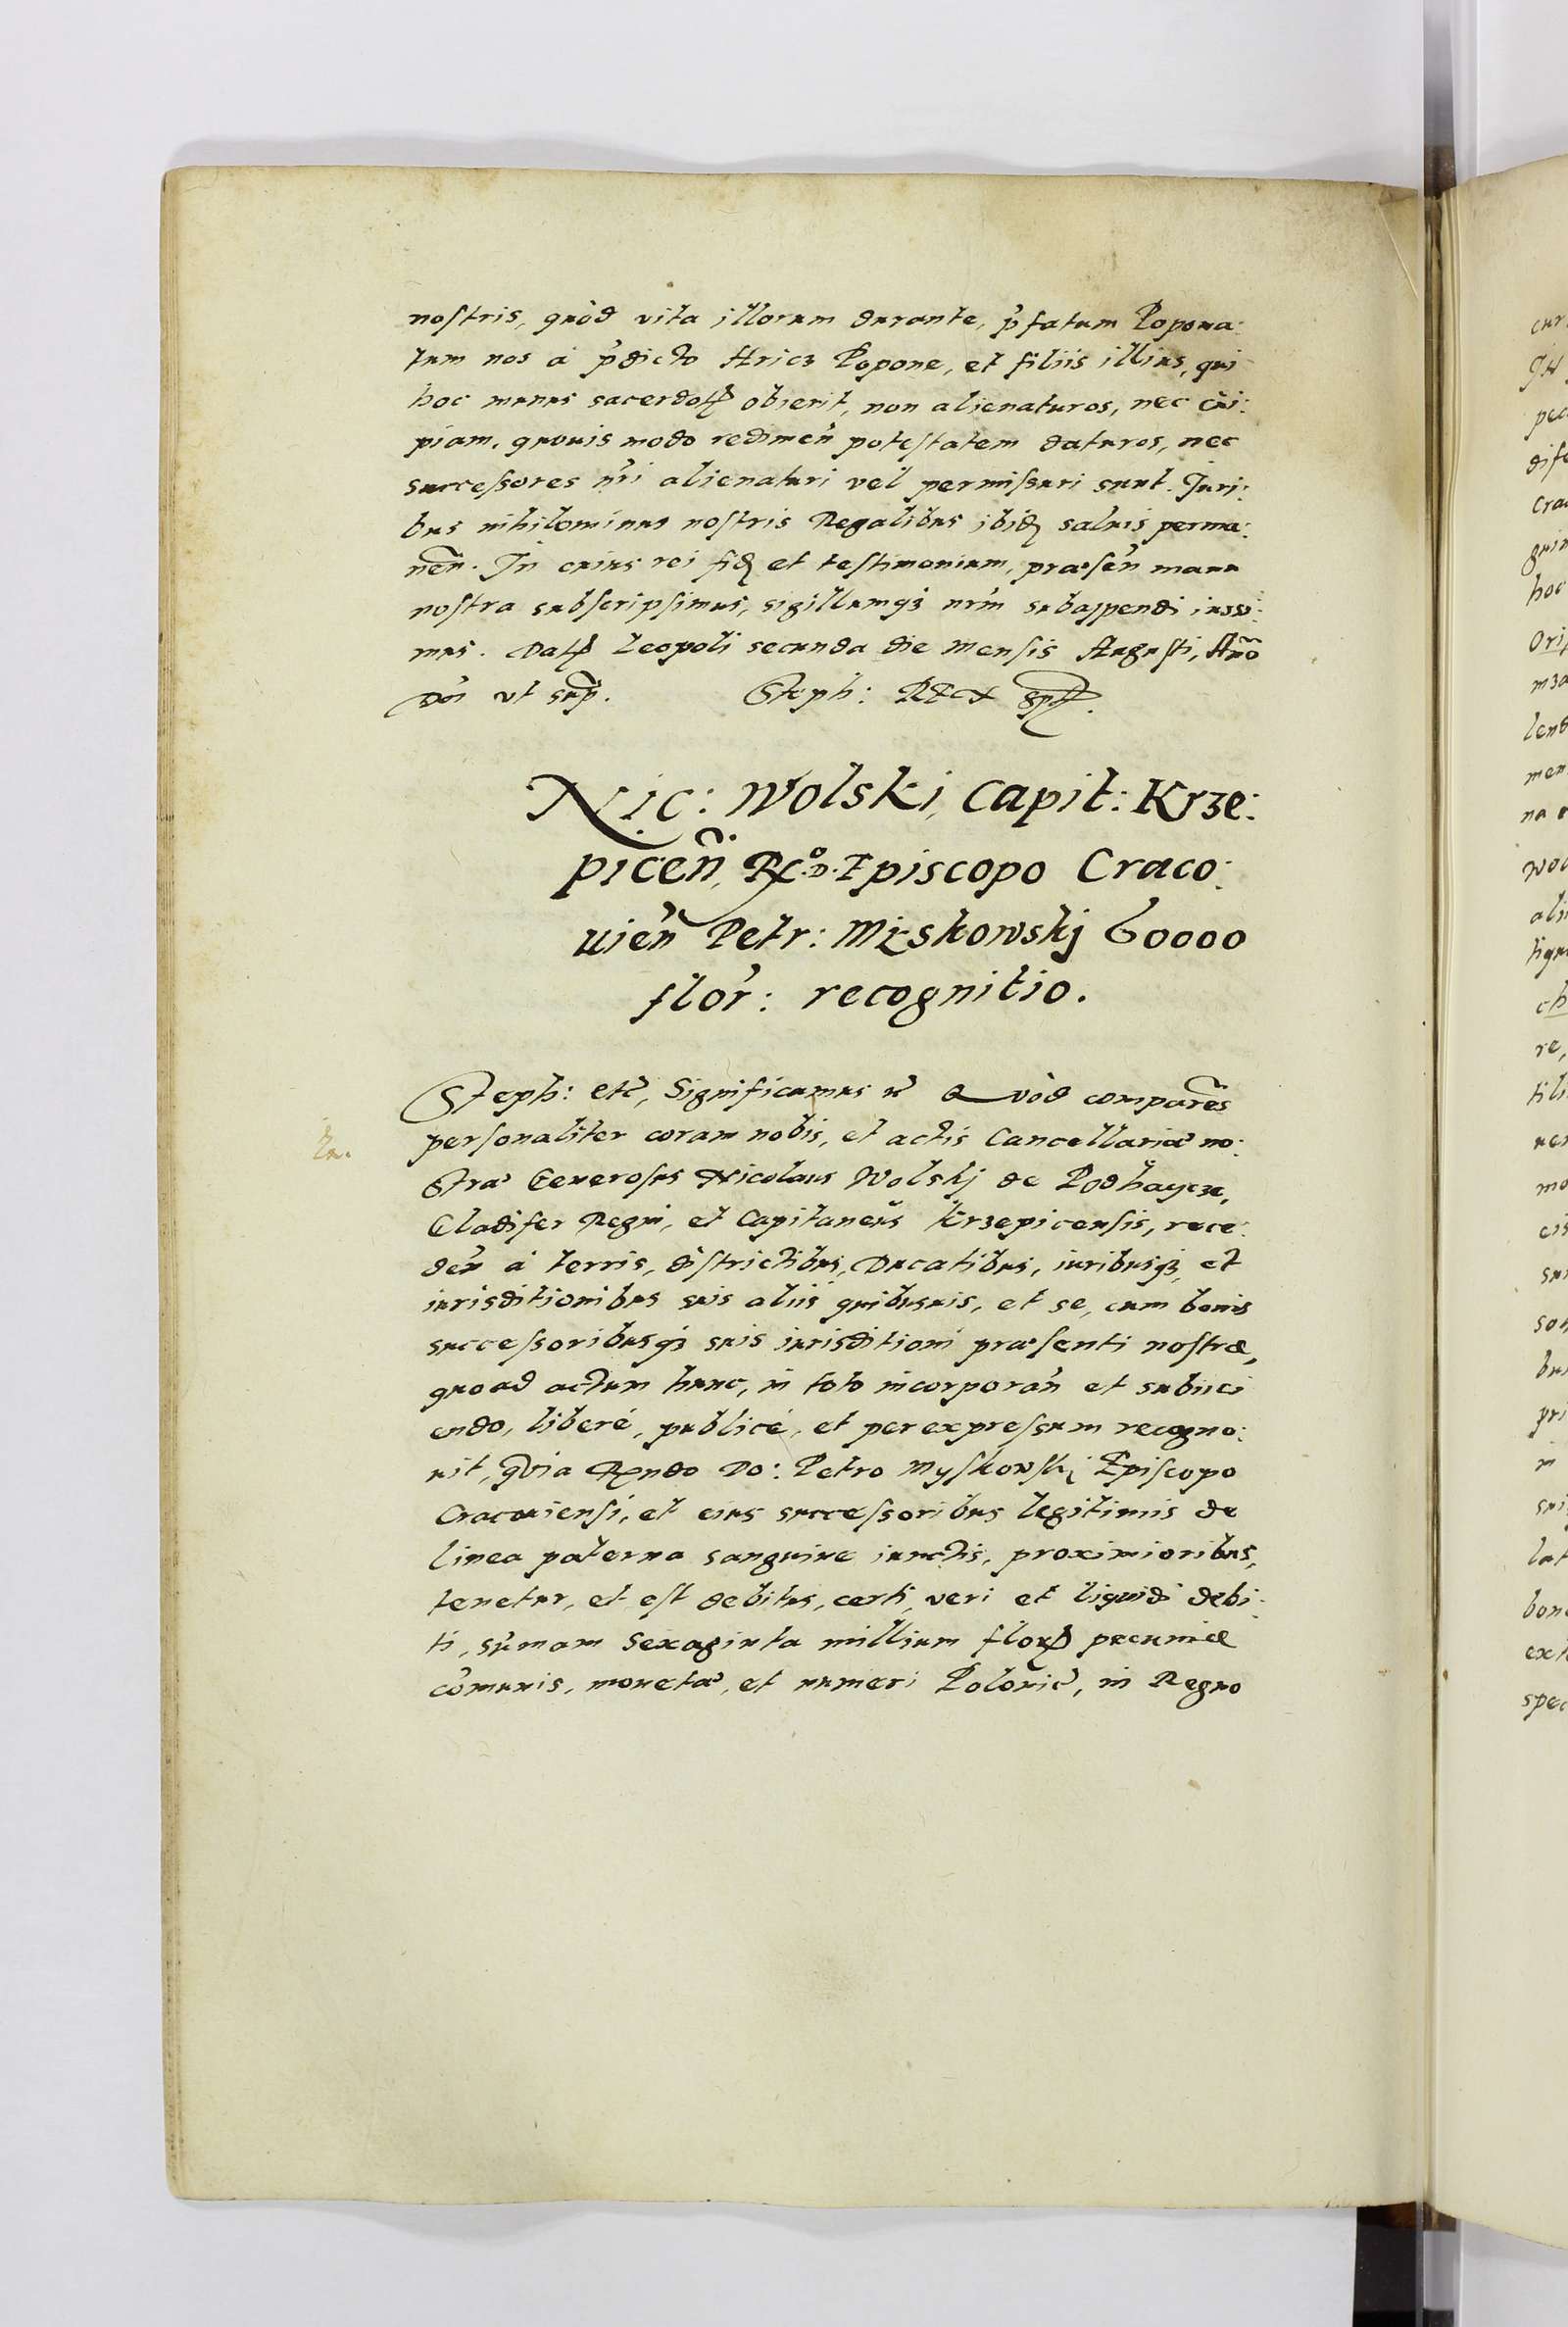 nostris, quòd vita illorum durante, p̃fatum Popona:
tum nos à p̃dicto Hricz Popone, et filiis illius, qui
hoc munus sacerdot̃ obierit, non alienaturos, nec cui:
piam, quouis modo redimeñ potestatem daturos, nec
successores nr̃i alienaturi vel permissuri sunt. Juri:
bus nihilominus nostris Regalibus ibid saluis perma:
neñ. In cuius rei fid et testimonium, præseñ manu
nostra subscripsimus, sigillumq3 nr̃m subappendi iussi:
mus. Dat̃ Leopoli secunda die mensis Augusti, Añno
Dñi vt sup̃. Steph: REX sp̃t.
Nic: Wolski, Capit: Krze:
piceñ, R.º D. Episcopo Craco:
uieñ Petr: Miskowskj 60000
flor̃: recognitio.
Steph: etc̃, Significamus rc̃ Quòd comparẽs
personaliter coram nobis, et actis Cancellariæ no:
stræ Generosus Nicolaus Wolskj de Podhaycze,
Eladifer Regni, et Capitaneus Krzepicensis, rece:
deñ à terris, districtibus, Ducatibus, iuribusq3, et
iurisditionibus suis aliis quibusuis, et se, cum bonis
successoribusq3 suis iurisditioni præsenti nostræ,
quo ad actum hunc, in toto incorporañ et subiici
endo, liberè, publicè, et per expressum recogno:
uit, quia Rendo Do: Petro Myskowski Episcopo
Cracouiensi, et eius successoribus legitimis de
linea paterna sanguine iunctis, proximioribus,
tenetur, et est debitus, certi, veri et liquidi debi:
ti, sum̃am Sexaginta millium flor̃ pecuniæ
com̃unis, monetæ, et numeri Polonic̃, in Regno